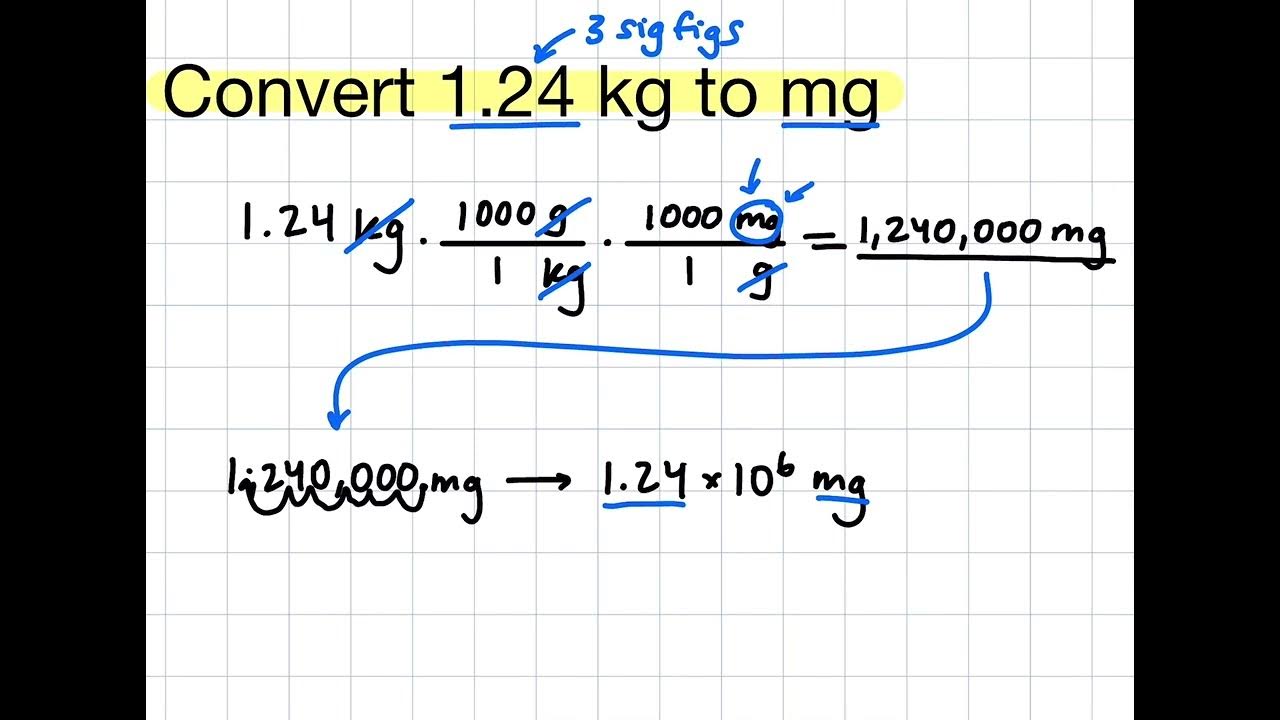 3 sig figs
Convert 1.24 kg to mg
1.24 kg · 1000 g / 1 kg · 1000 mg / 1 g = 1,240,000 mg
1.240,000.mg → 1.24 × 10⁶ mg